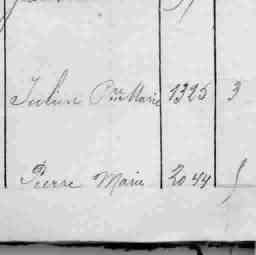 Julien Pre Marie 1325 3
Pierre Marie 2044